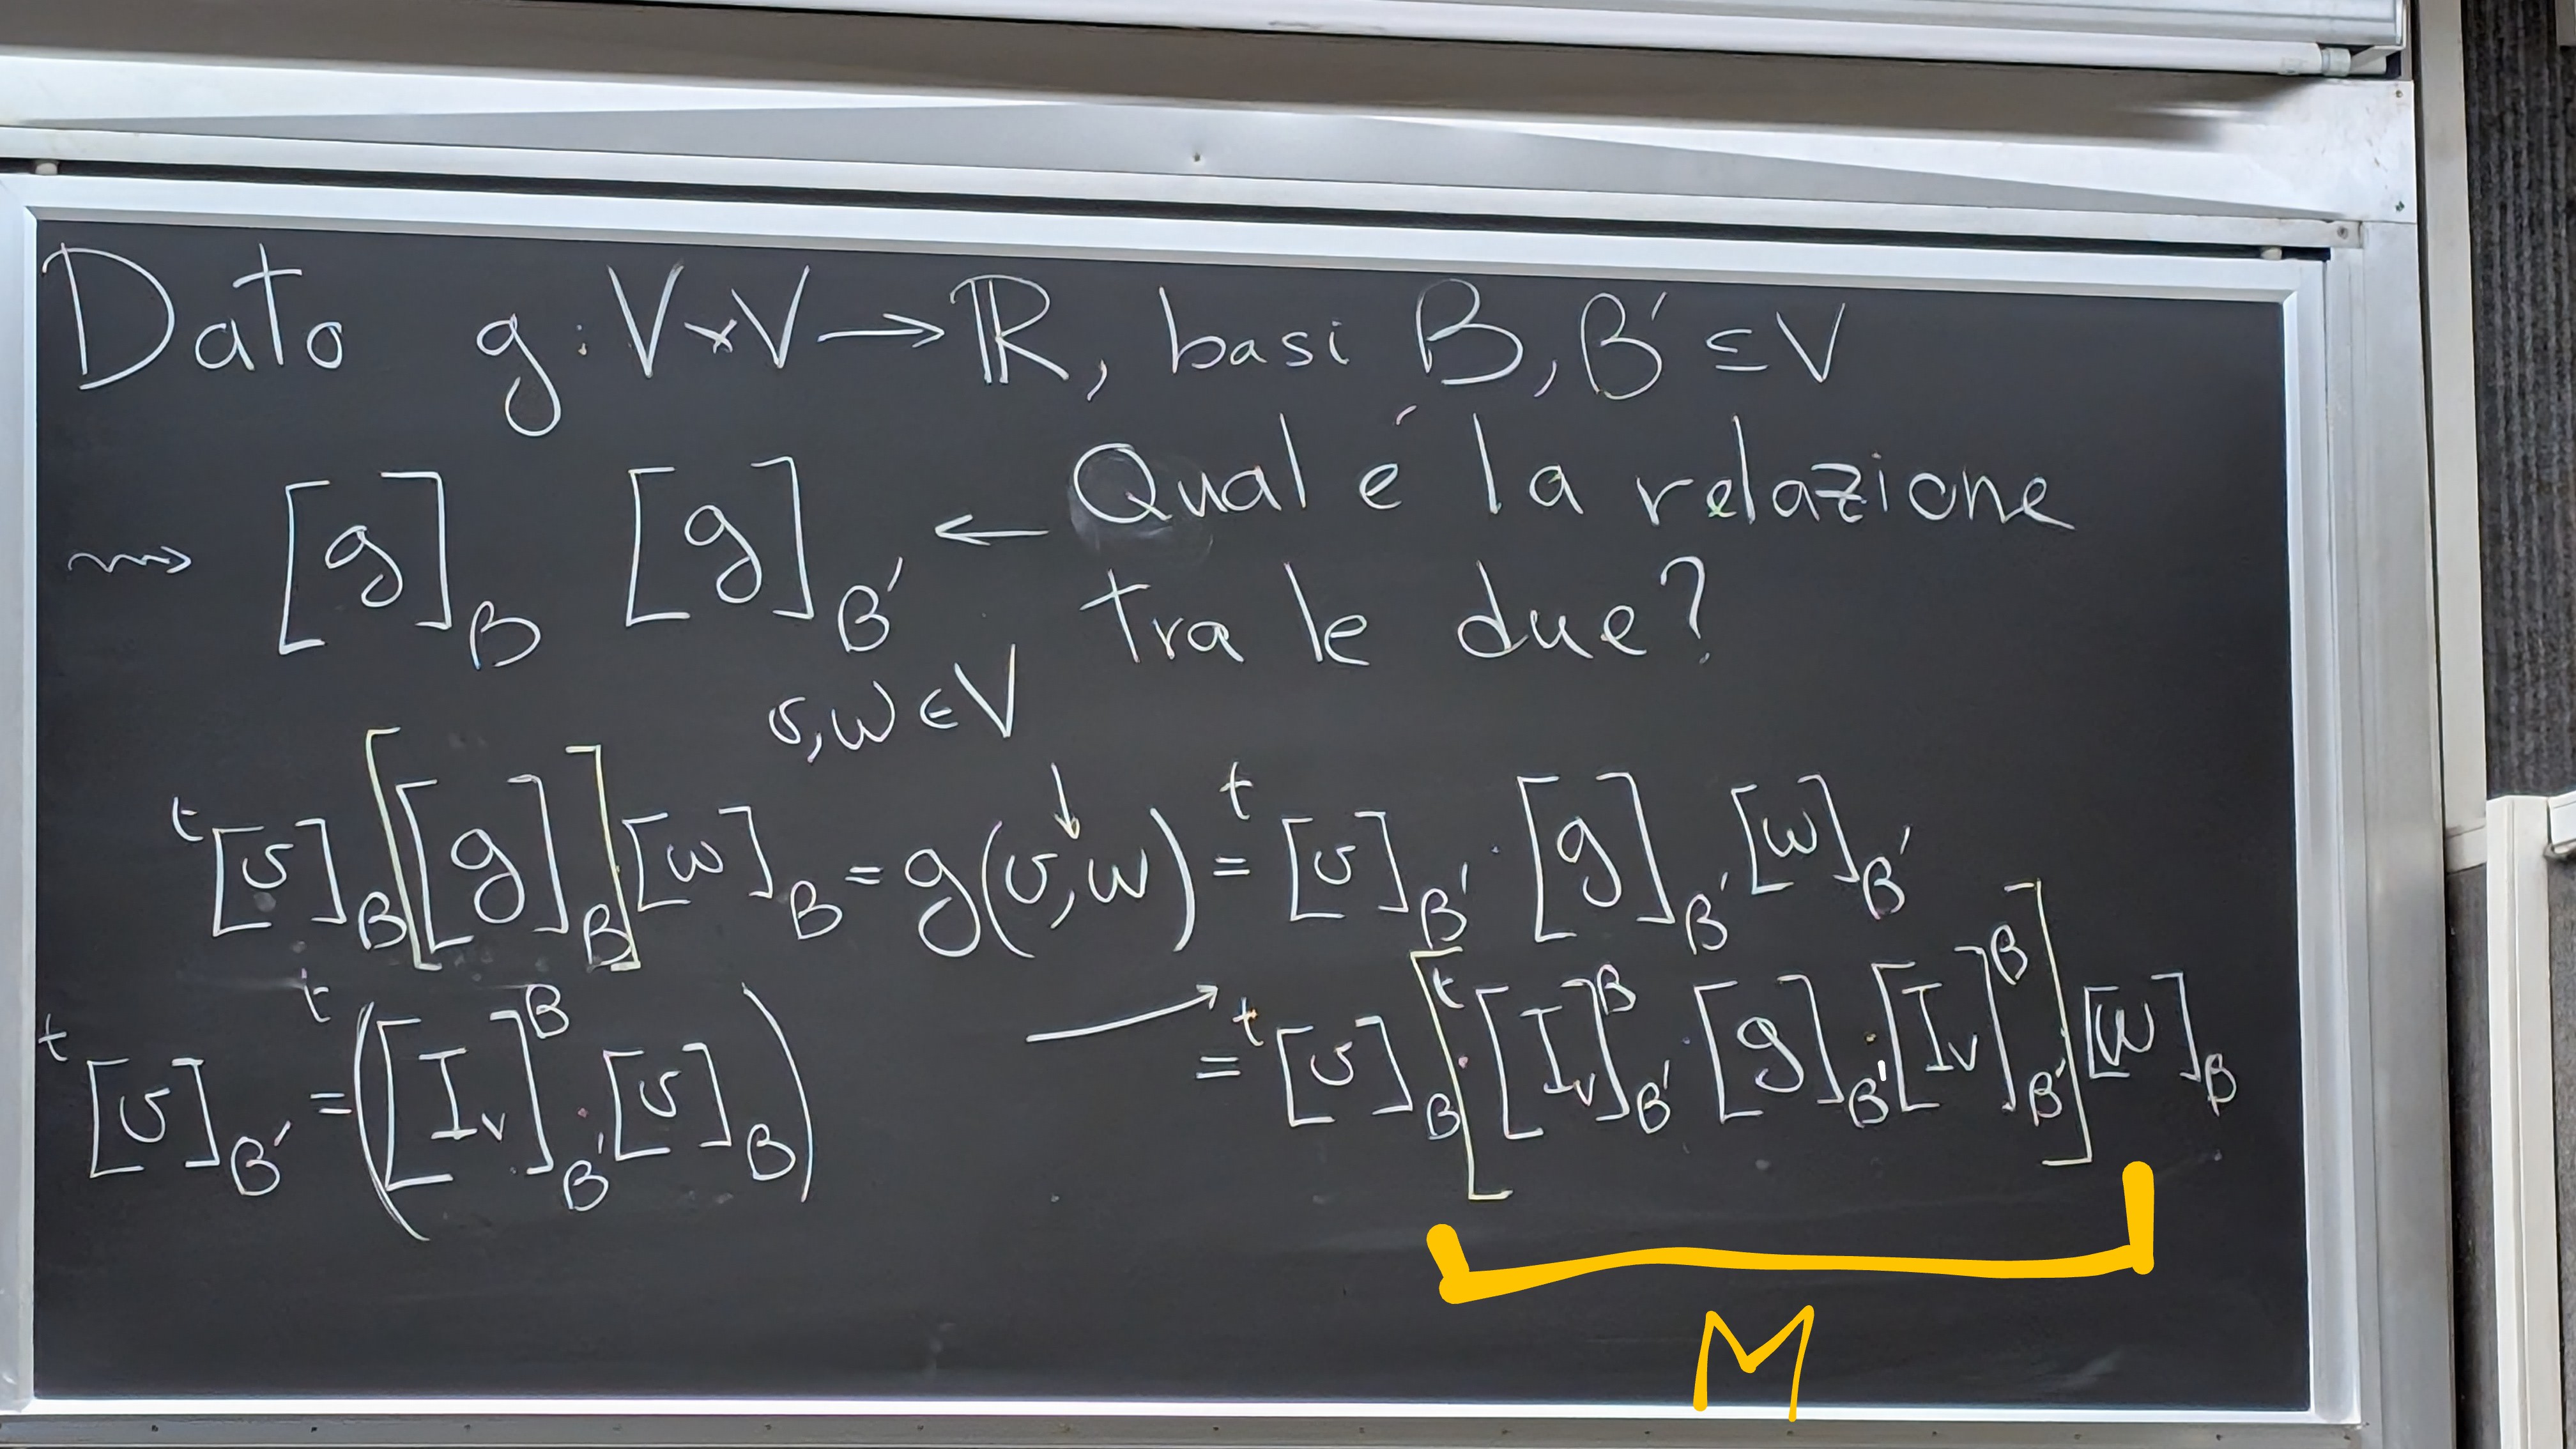 Dato g: V×V → ℝ, basi B, B' ⊆ V
⇝ [g]_B [g]_B' ← Qual é la relazione
tra le due?
v, w ∈ V
↓
ᵗ[v]_B [[g]_B] [w]_B = g(v, w) = ᵗ[v]_B' · [g]_B' [w]_B'
ᵗ[v]_B' = ᵗ([I_V]^B_B' · [v]_B) → = ᵗ[v]_B · [ᵗ[I_V]^B_B' · [g]_B' · [I_V]^B_B'] [w]_B
M